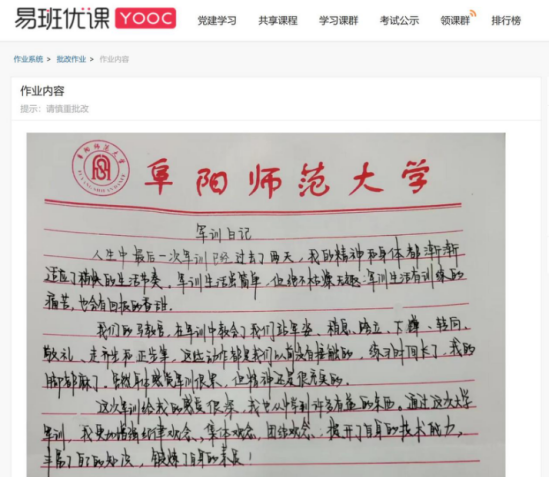 易班优课 YOOC 党建学习 共享课程 学习课群 考试公示 领课群 排行榜
作业系统 > 批改作业 > 作业内容
作业内容
提示：请慎重批改
阜阳师范大学
军训日记
人生中最后一次军训已经过去了两天，我的精神和身体都渐渐
适应了愉快的生活节奏。军训生活虽简单，但绝不枯燥无趣，军训生活有训练的
痛苦，也会有回报的香甜。
我们的教官，在军训中教会了我们站军姿、稍息、跨立、下蹲、转向、
敬礼、走齐步和正步等，这些动作都是我们以前没有接触的，练习时间长了，我的
脚都麻了。虽然身体感觉军训很累，但精神还是很充实的。
这次军训给我的感觉很深，我也从中学到许多有益的东西。通过这次大学
军训，我更加增强纪律观念、集体观念、团结观念，提升了自身的技术能力，
丰富了自己的知识，锻炼了自身的素质！